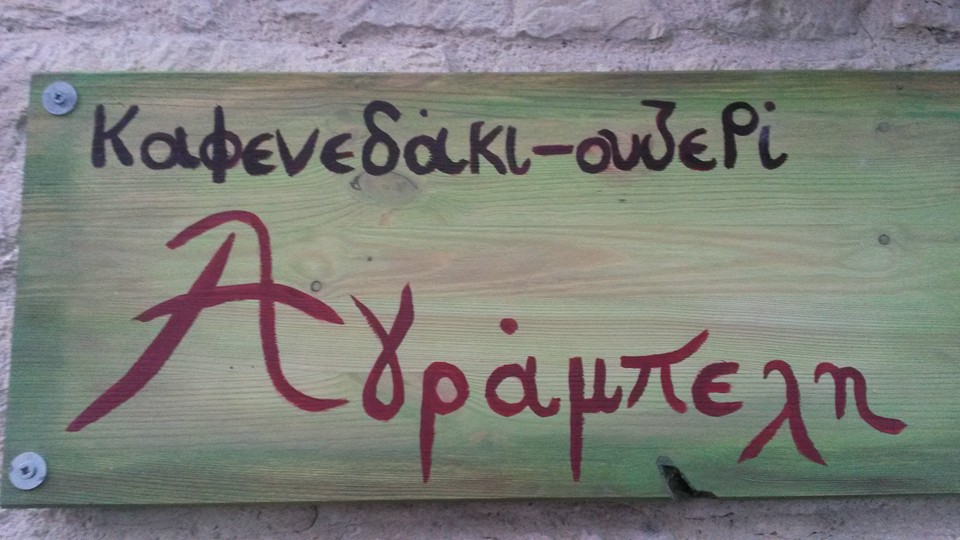 Καφενεδάκι-ουζερί
Αγράμπελη